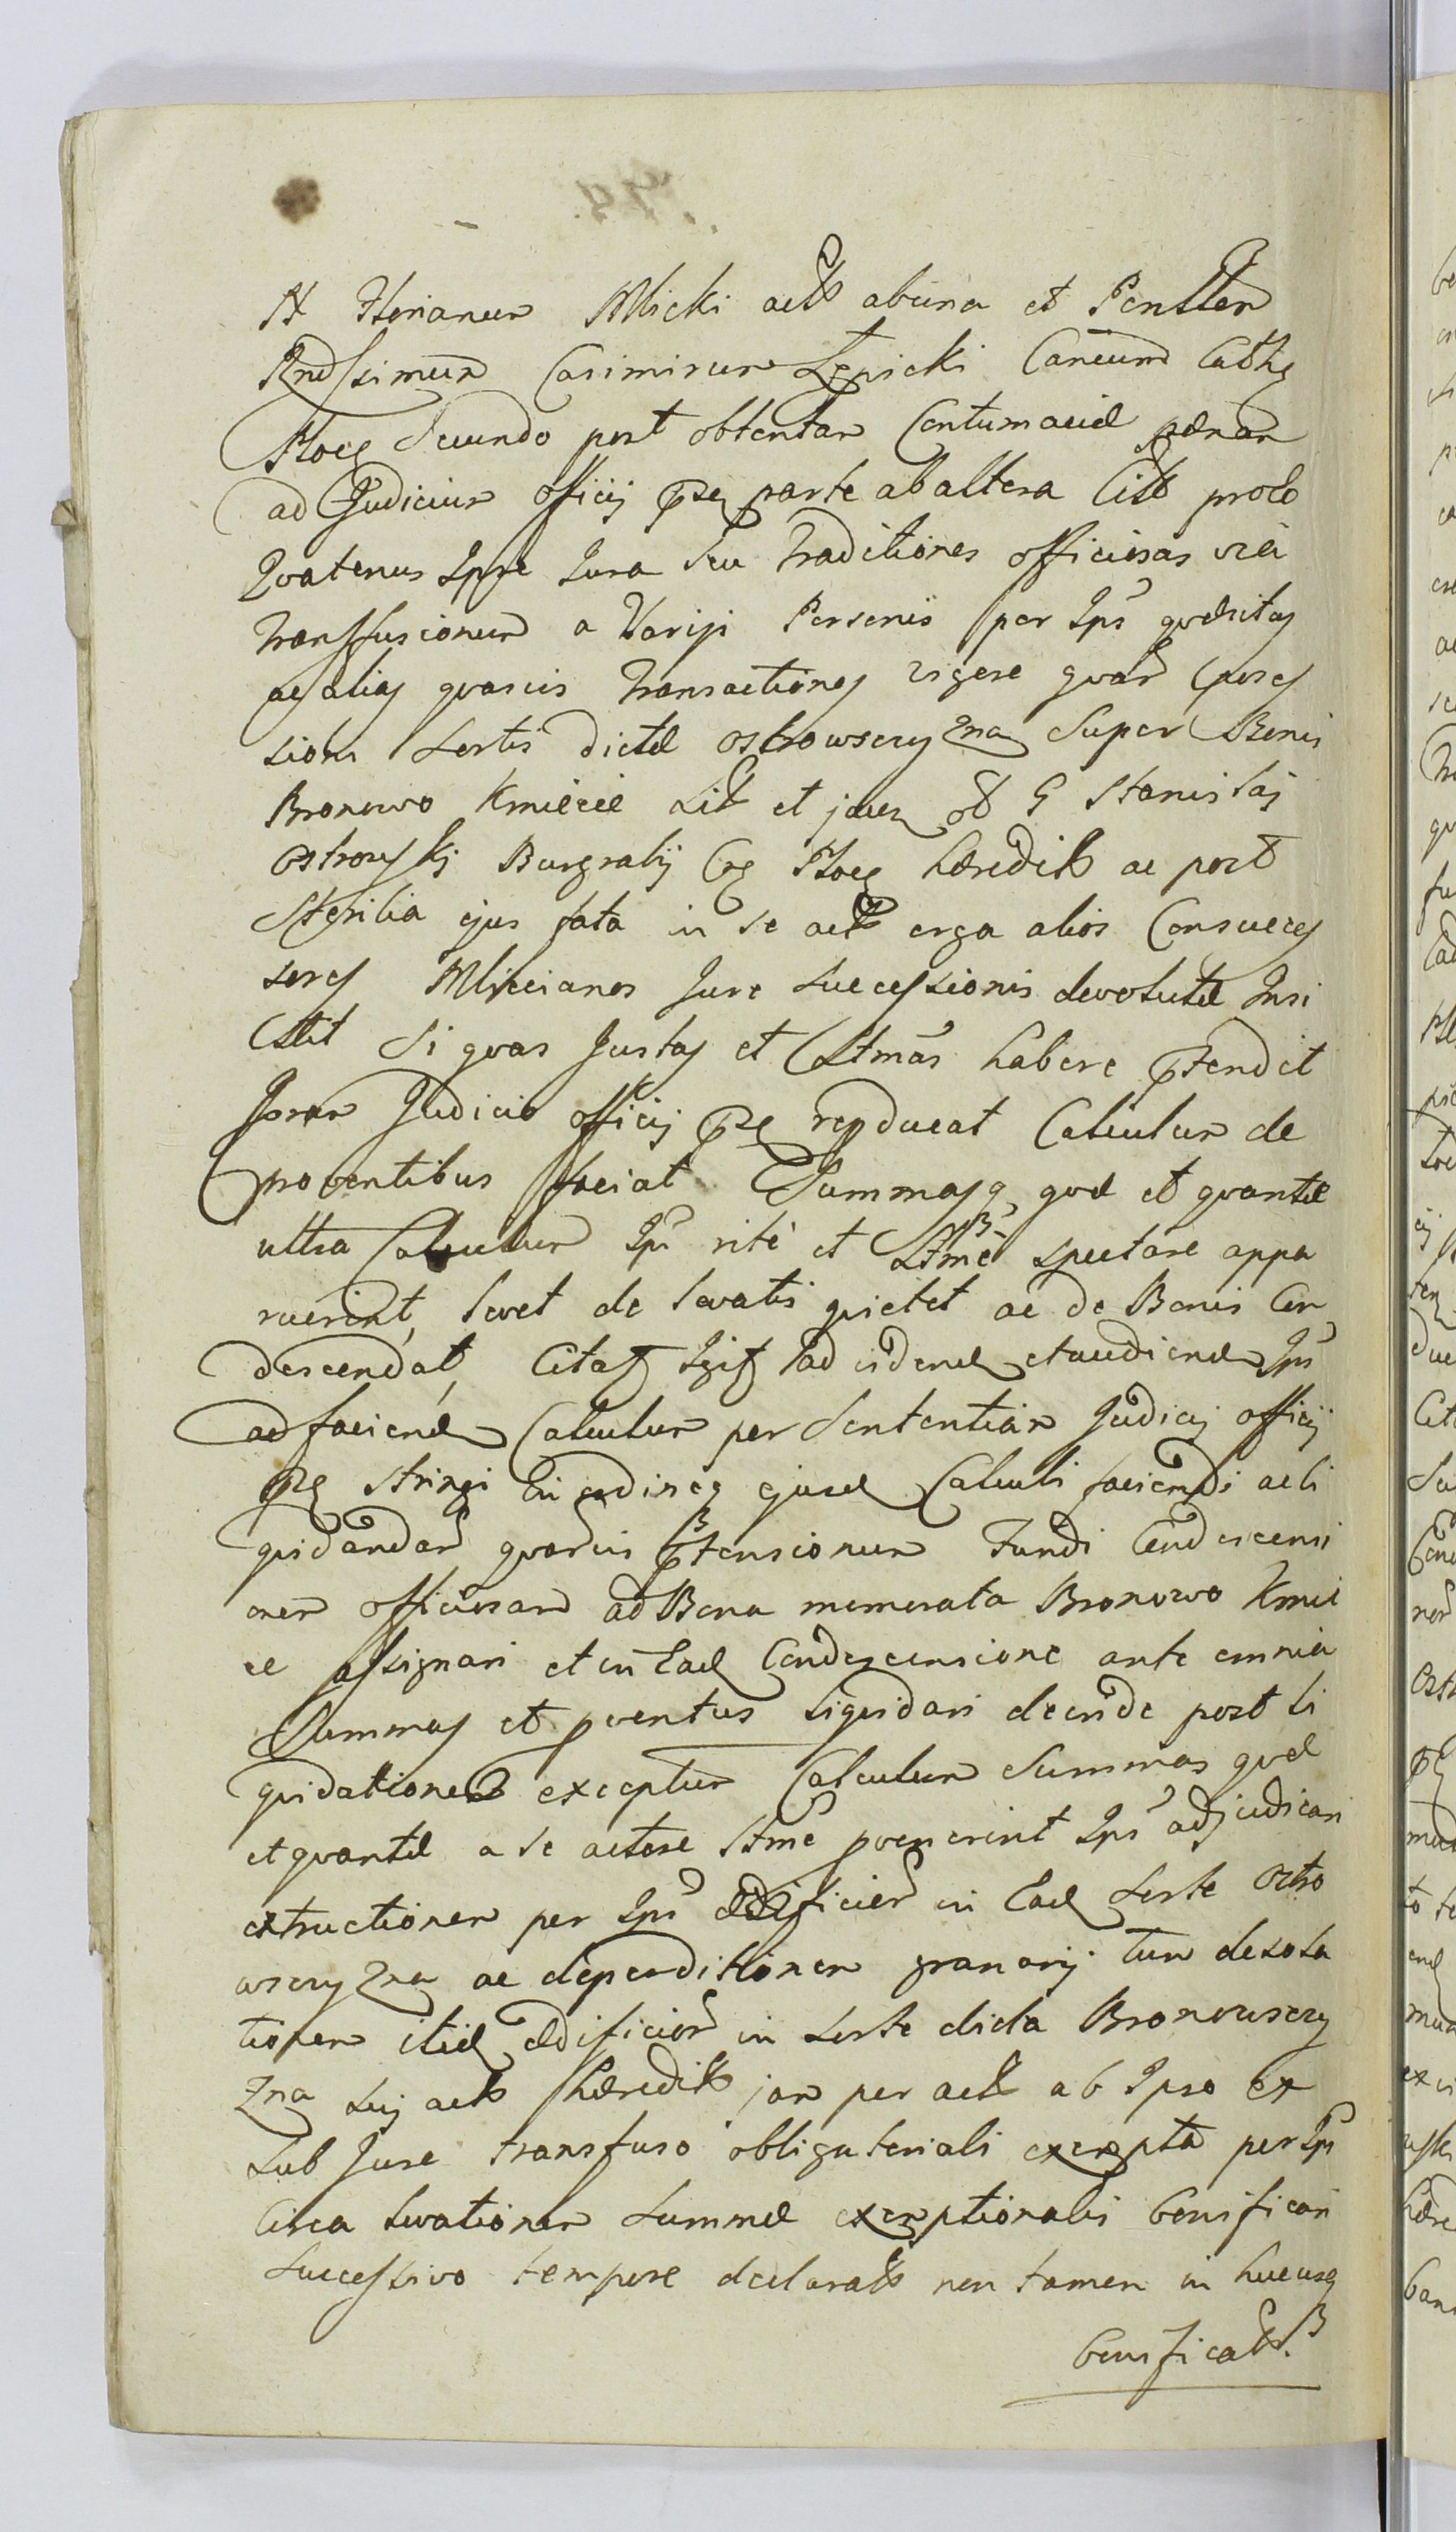 Florianum Mlicki actt ab una et
Rndssimum Casimirum Lępicki Cancum Cathg
Plocg Secundo post obtentam Contumaciæ pænam
ad Judicium Officij parte ab altera Citt prolo
Qvatenus Ipse Jura seu Traditiones officiosas via
Transfusionum a Varijs Personis per Ips qvæsitas
ac alias qvasvis Transactiones vigore qvar posses
sioni Sortis dictæ Ostrowsczyzna Super Bonis
Bronowo Kmiecie sit et jacen ad G Stanislaj
Ostrowskj Burgrabij Plocg hæreditt ac post
Sterilia ejus fata in se actt erga alios Consucces
sores Mliccianos Jure Successionis devolutæ Insi
stit Si qvas Justas et Ltmas habere ptendit
Coram Judicio Officij png repducat Calculum de
proventibus faciat Summasq qvæ et qvantæ
ultra Calculum Ips ritè et Ltmè spectare appa
ruerint, levet de levatis qvietet ac de Bonis Con
descendat, Citat ad vidend et audiend Ips
ad faciend Calculum per Sententiam Judicij Officij
png Stringi Eu ordineq ejusd Calculi faciendi ac li
qvidandar qvarvis ptensionum Fundi Condescensi
onem officiosam ad Bona memorata Bronowo Kmie
cie assignari et in Ead Condescensione ante omnia
Summas et pventus liqvidari deinde post li
qvidationem exceptum Calculum Summas qvæ
et qvantæ a se actore Ltme pvenerint Ips adjudicari
extructionem per Ips ædificior in Ead Sorte Ostro
wsczyzna ac deperditionem granarij tum desola
tionem itid ædificior in Sorte dicta Bronowsczy
zna Suj actt hæreditt jam per actt ab Ipso Ex
Sub Jure transfuso obligatoriali exempta per Ips
Circa levationem Summæ exemptionalis bonificari
Successivo tempore declaratt non tamen in hucusq
bonificatt.